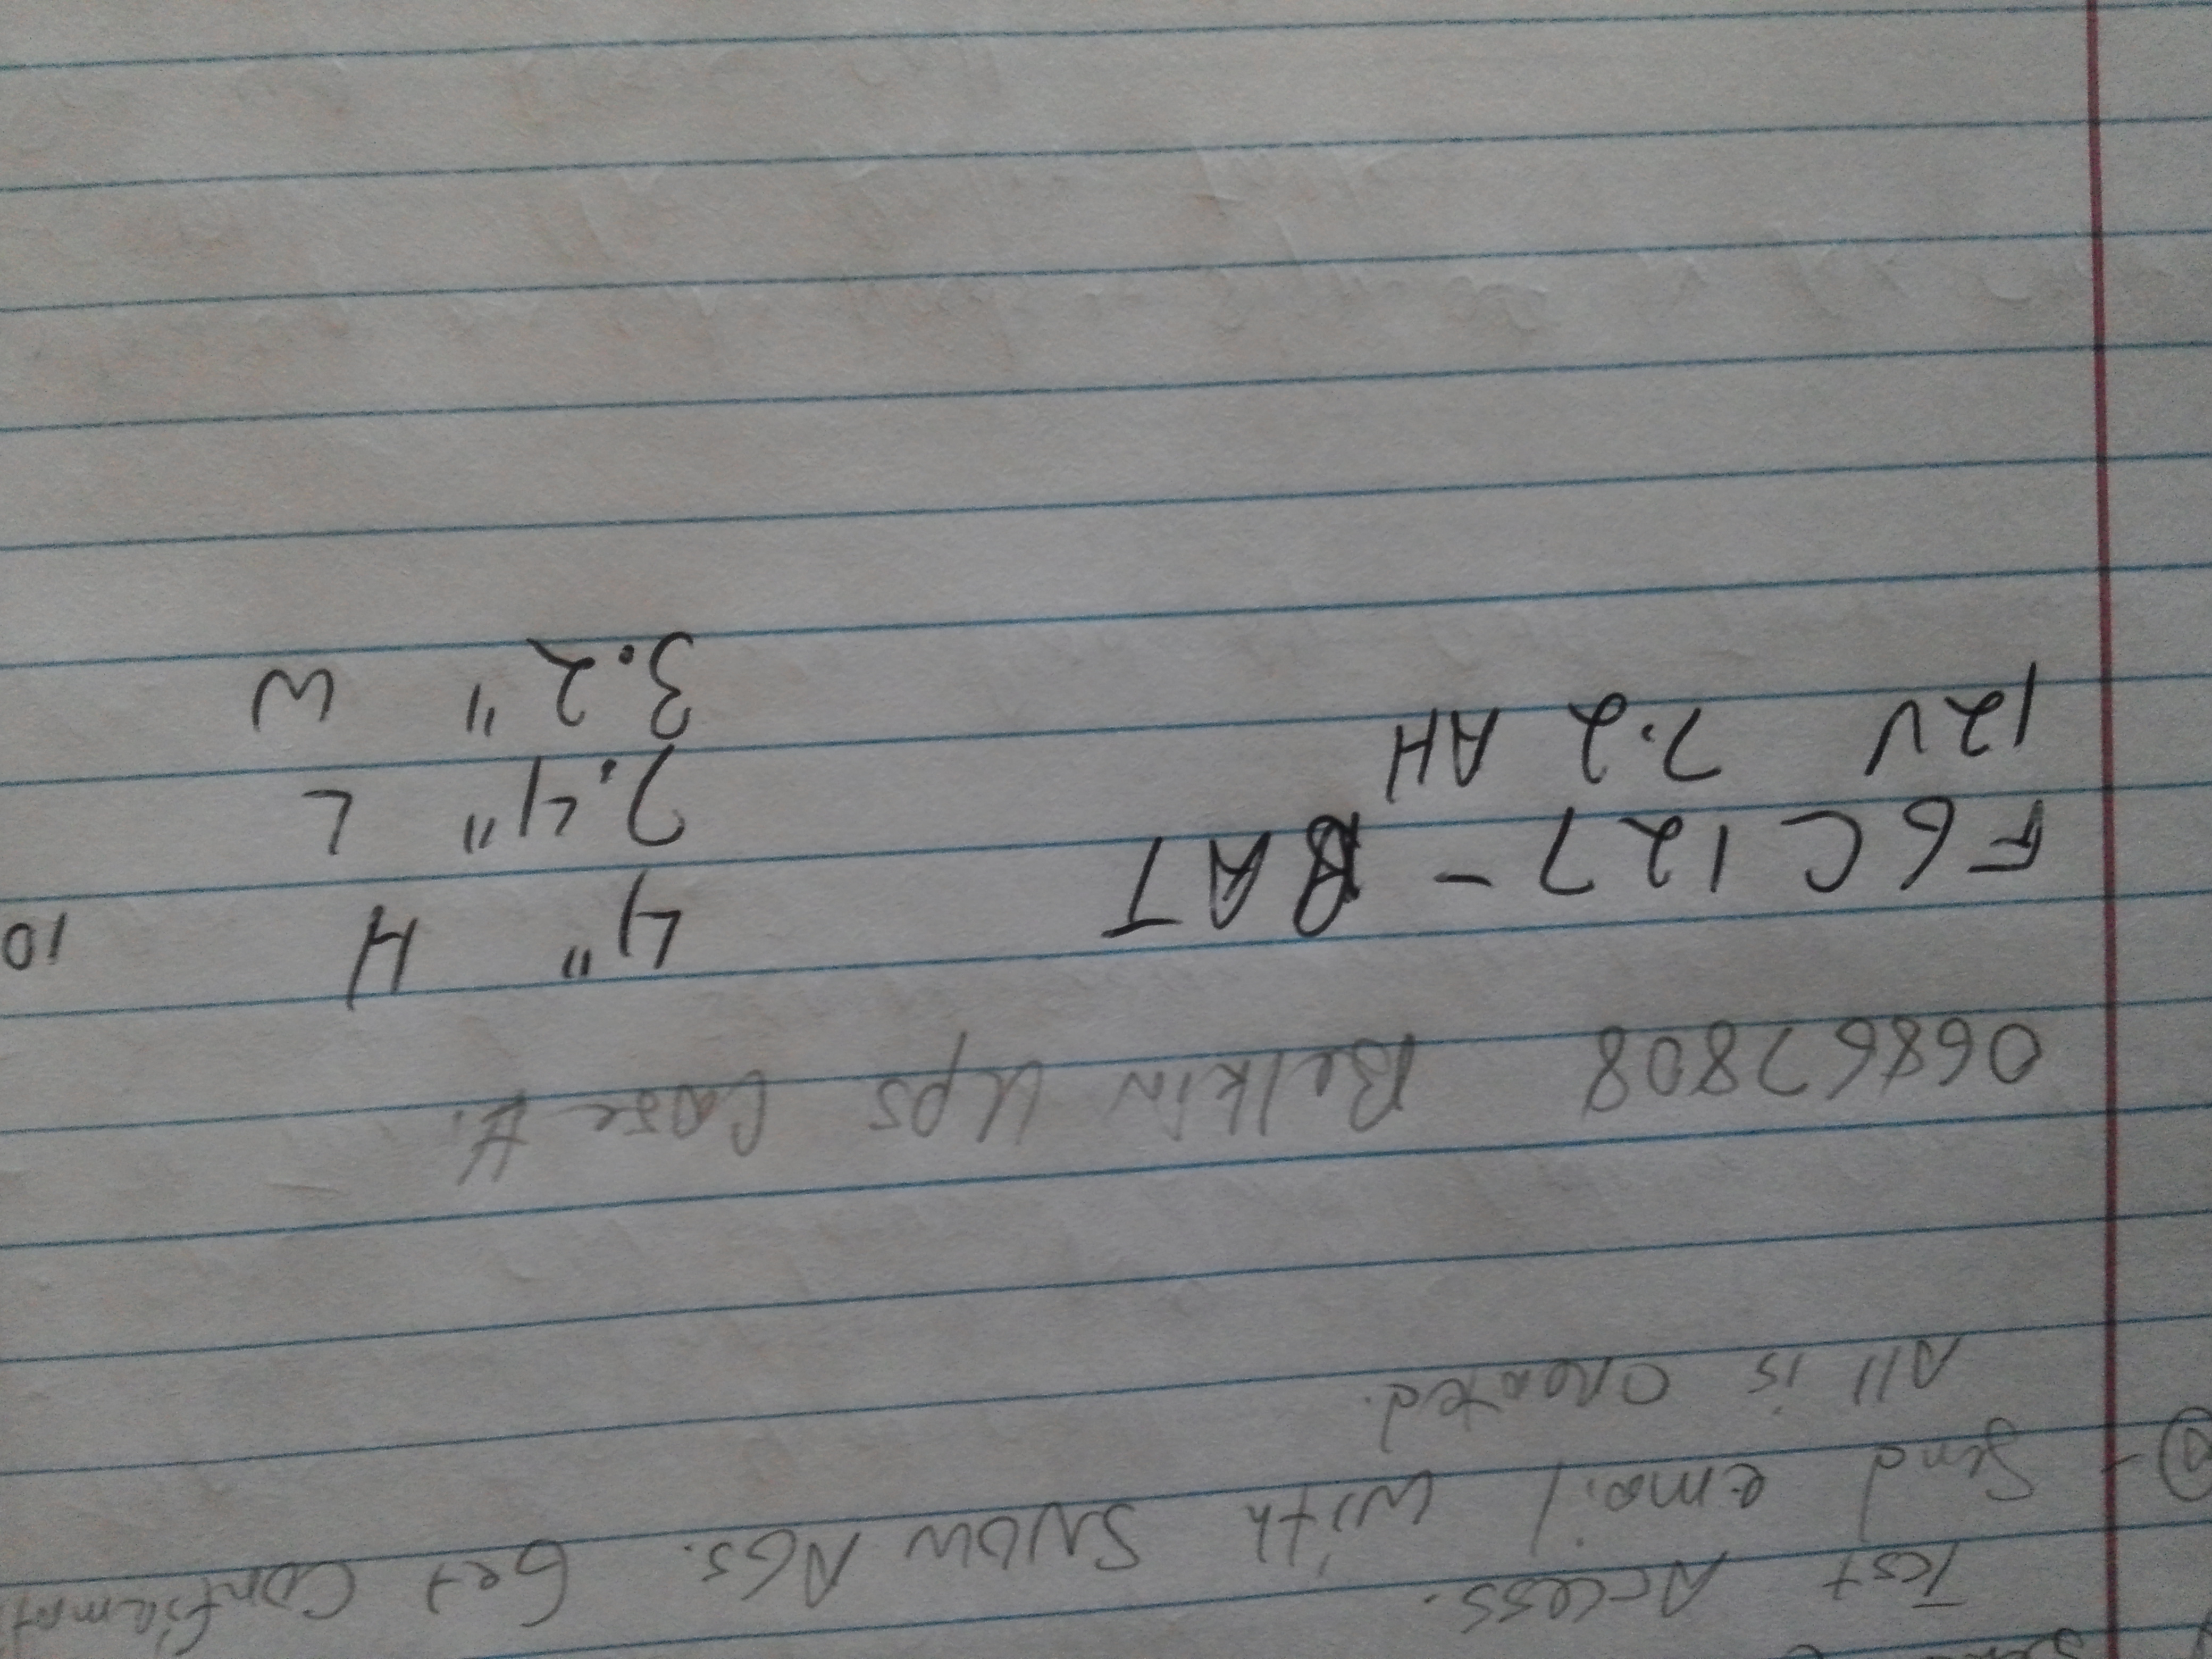 Test Access.
- Send email with SNOW AGS. Get Confirmat
All is created.
06867808 Belkin Ups Case #.
F6C127 - BAT 4" H 10
12V 7.2 AH 7.4" L
3.2" W